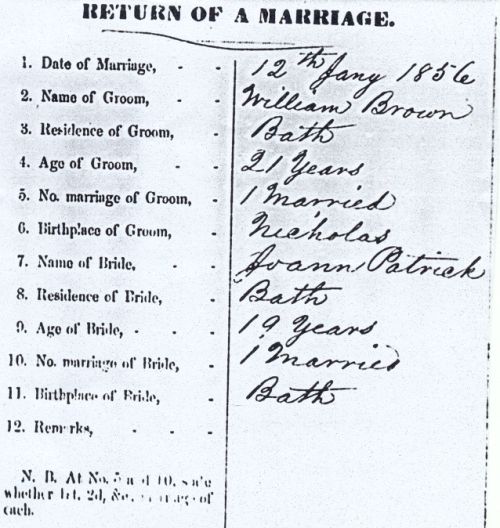 RETURN OF A MARRIAGE.
1. Date of Marriage, - - 12th Jany 1856
2. Name of Groom, - - William Brown
3. Residence of Groom, - Bath
4. Age of Groom, - 21 Years
5. No. marriage of Groom, - 1 Married
6. Birthplace of Groom, - Nicholas
7. Name of Bride, - - Joann Patrick
8. Residence of Bride, - Bath
9. Age of Bride, - - - 19 Years
10. No. marriage of Bride, - 1 Married
11. Birthplace of Bride, - Bath
12. Remarks, - - -
N. B. At No. 5 and 10, state
whether 1st, 2d, &c. marriage of
each.